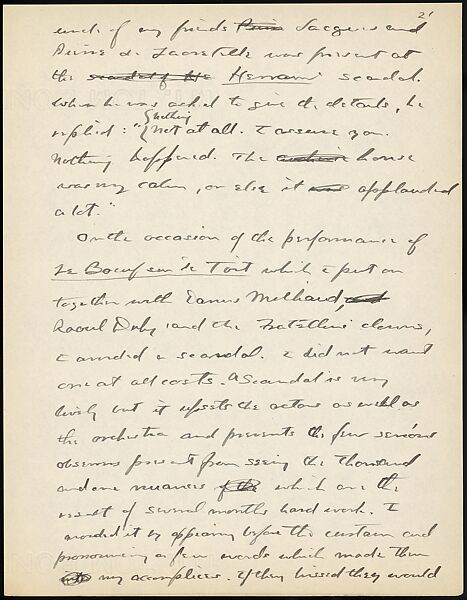 2'
uncle of my friends Jacques and
Anne de Lacretelle was present at
the scandal of the Hernani scandal.
When he was asked to give the details, he
replied: "Nothing Not at all. I assure you.
Nothing happened. The house
was very calm, or else it was applauded
a lot."
On the occasion of the performance of
Le Boeuf sur le Toit which I put on
together with Darius Milhaud, and
Raoul Dufy and the Fratellini clowns,
I avoided a scandal. I did not want
one at all costs. A scandal is very
lively but it upsets the actors as well as
the orchestra and prevents the few serious
observers present from seeing the thousand
and one nuances of the which are the
result of several months hard work. I
avoided it by appearing before the curtain and
pronouncing a few words which made them
into my accomplices. If they hissed they would